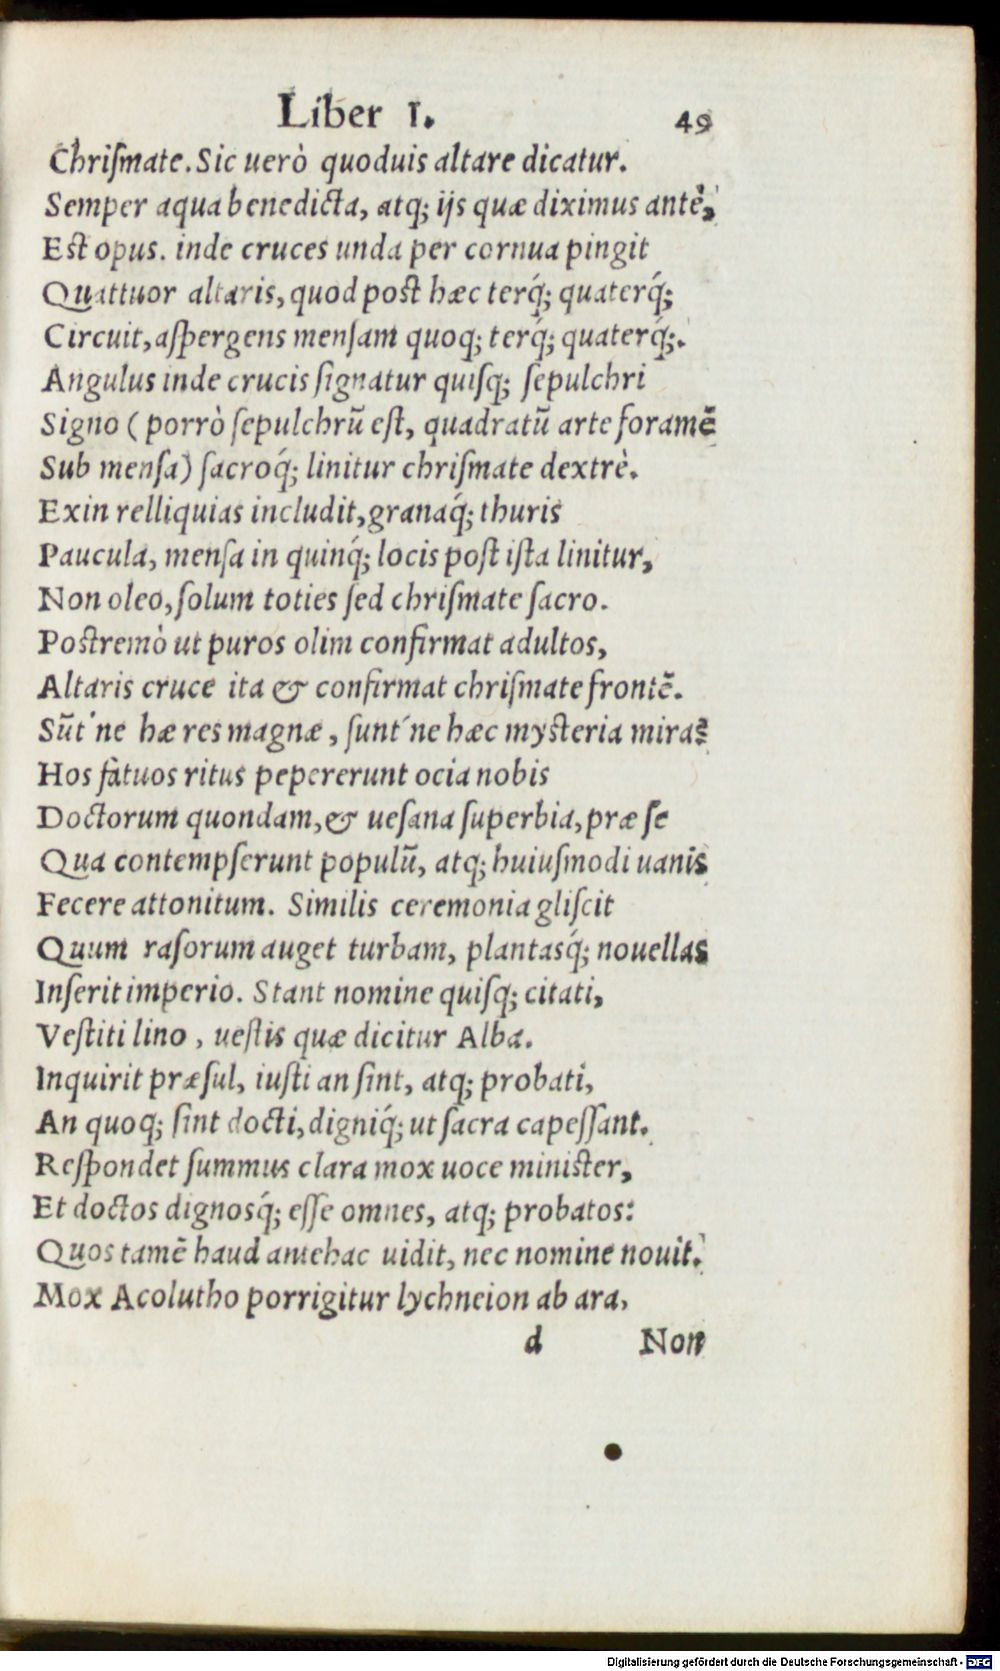 Liber I. 49
Chriſmate. Sic uerò quoduis altare dicatur.
Semper aqua benedicta, atq; ijs quæ diximus antè,
Est opus. inde cruces unda per cornua pingit
Quattuor altaris, quod post hæc terq́; quaterq́;
Circuit, aſpergens menſam quoq; terq́; quaterq́;.
Angulus inde crucis ſignatur quiſq; ſepulchri
Signo (porrò ſepulchrũ eſt, quadratũ arte foramẽ
Sub menſa) ſacroq́; linitur chriſmate dextrè.
Exin relliquias includit, granaq́; thuris
Paucula, menſa in quinq́; locis poſt iſta linitur,
Non oleo, ſolum toties ſed chriſmate ſacro.
Postremò ut puros olim confirmat adultos,
Altaris cruce ita & confirmat chriſmate frontẽ.
Sũt'ne hæ res magnæ, ſunt'ne hæc mysteria mira?
Hos fatuos ritus pepererunt ocia nobis
Doctorum quondam, & ueſana ſuperbia, præ ſe
Qua contempſerunt populũ, atq; huiuſmodi uanis
Fecere attonitum. Similis ceremonia gliſcit
Quum raſorum auget turbam, plantasq́; nouellas
Inſerit imperio. Stant nomine quiſq; citati,
Veſtiti lino, ueſtis quæ dicitur Alba.
Inquirit præſul, iuſti an ſint, atq; probati,
An quoq; ſint docti, digniq́; ut ſacra capeſſant.
Reſpondet ſummus clara mox uoce minister,
Et doctos dignosq́; eſſe omnes, atq; probatos:
Quos tamẽ haud antehac uidit, nec nomine nouit.
Mox Acolutho porrigitur lychneion ab ara,
d Non
Digitalisierung gefördert durch die Deutsche Forschungsgemeinschaft - DFG